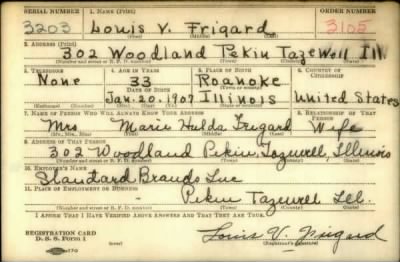 SERIAL NUMBER 1. NAME (Print) ORDER NUMBER
3203 Louis V. Frigard 3105
2. ADDRESS (Print)
302 Woodland Pekin Tazewell Ill.
(Number and street or R. F. D. number) (Town) (County) (State)
3. TELEPHONE 4. AGE IN YEARS 5. PLACE OF BIRTH 6. COUNTRY OF CITIZENSHIP
None 33 Roanoke
DATE OF BIRTH (Town or county)
Jan. 20. 1907 Illinois United States
(Exchange) (Number) (Mo.) (Day) (Yr.) (State or country)
7. NAME OF PERSON WHO WILL ALWAYS KNOW YOUR ADDRESS 8. RELATIONSHIP OF THAT PERSON
Mrs Marie Hulda Frigard Wife
(Mr., Mrs., Miss) (First) (Middle) (Last)
9. ADDRESS OF THAT PERSON
302 Woodland Pekin, Tazewell, Illinois
(Number and street or R. F. D. number) (Town) (County) (State)
10. EMPLOYER'S NAME
Standard Brands Inc
11. PLACE OF EMPLOYMENT OR BUSINESS
Pekin Tazewell Ill.
(Number and street or R. F. D. number) (Town) (County) (State)
I AFFIRM THAT I HAVE VERIFIED ABOVE ANSWERS AND THAT THEY ARE TRUE.
REGISTRATION CARD
D. S. S. Form 1 Louis V. Frigard
(Registrant's signature)